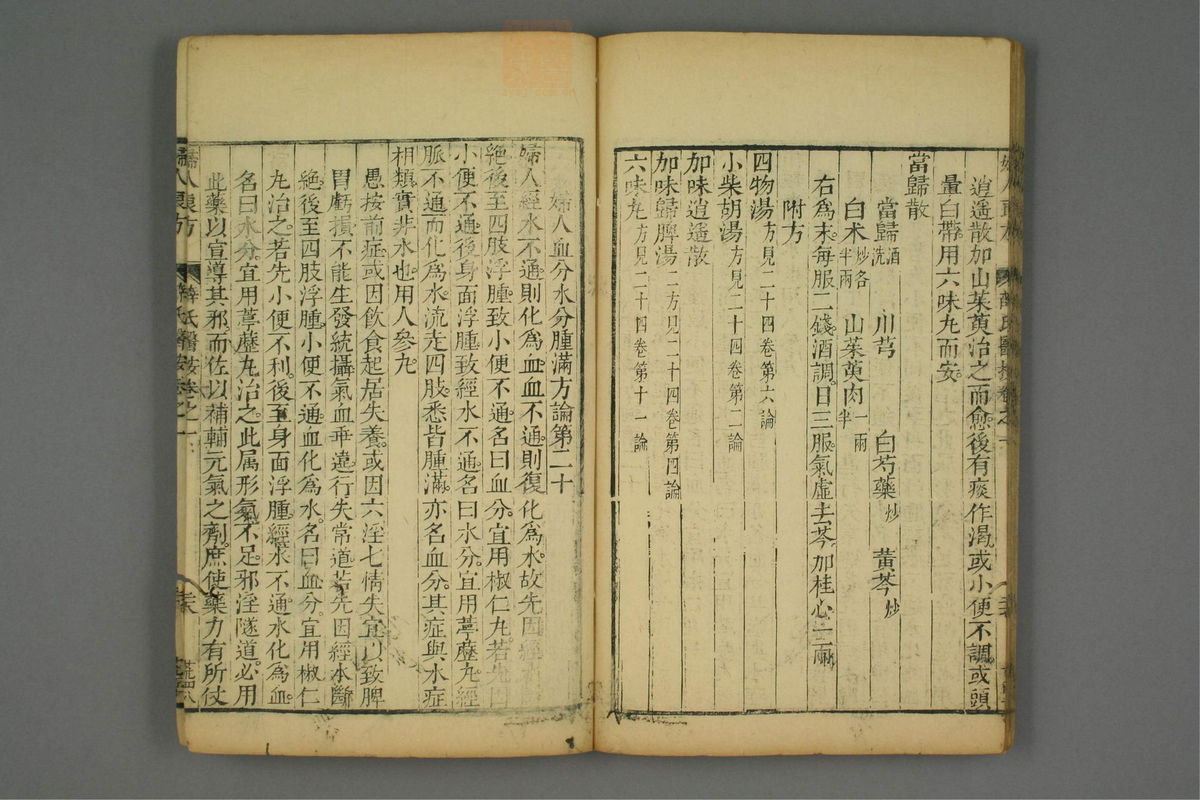 逍遙散加山茱萸治之而愈後有痰作渴或小便不調或頭
暈白帶用六味丸而安
當歸散
當歸酒洗 川芎 白芍藥炒 黃芩炒
白朮炒各半兩 山茱萸肉一兩半
右爲末每服二錢酒調日三服氣虛去芩加桂心一兩
附方
四物湯方見二十四卷第六論
小柴胡湯方見二十四卷第二論
加味逍遙散
加味歸脾湯二方見二十四卷第四論
六味丸方見二十四卷第十一論
婦人血分水分腫滿方論第二十
婦人經水不通則化爲血血不通則復化爲水故先因經
絶後至四肢浮腫致小便不通名曰血分宜用椒仁丸若先因
小便不通後身面浮腫致經水不通名曰水分宜用葶藶丸經
脈不通而化爲水流走四肢悉皆腫滿亦名血分其症與水症
相類實非水也用人參丸
愚按前症或因飲食起居失養或因六淫七情失宜以致脾
胃虧損不能生發統攝氣血乖違行失常道若先因經水斷
絶後至四肢浮腫小便不通血化爲水名曰血分宜用椒仁
丸治之若先小便不利後至身面浮腫經水不通水化爲血
名曰水分宜用葶藶丸治之此属形氣不足邪淫隧道必用
此藥以宣導其邪而佐以補輔元氣之劑庶使藥力有所仗
婦人良方 薛氏醫按卷之一